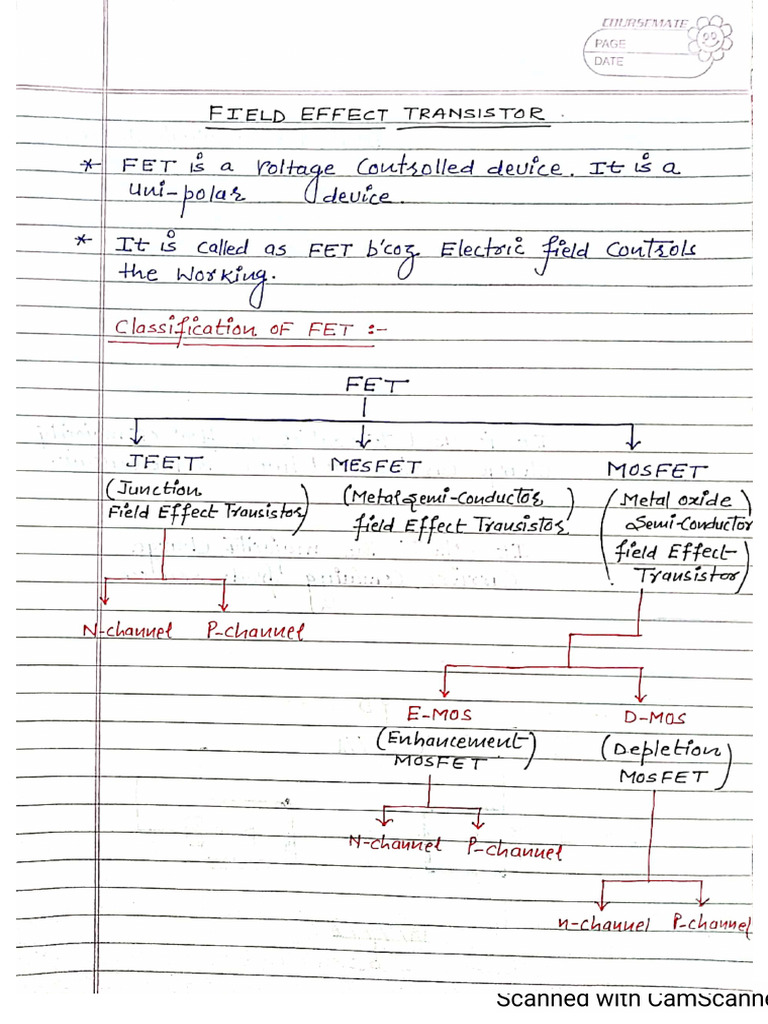 COURSEMATE
PAGE
DATE
FIELD EFFECT TRANSISTOR
* FET is a voltage controlled device. It is a
uni-polar device.
* It is called as FET b'coz Electric field controls
the working.
Classification of FET :-
FET
JFET MESFET MOSFET
(Junction (Metal semi-Conductor (Metal oxide
Field Effect Transistor) field Effect Transistor) semi-Conductor
field Effect
Transistor)
N-channel P-channel
E-MOS D-MOS
(Enhancement (Depletion
MOSFET) MOSFET)
N-channel P-channel
n-channel P-channel
Scanned with CamScanne